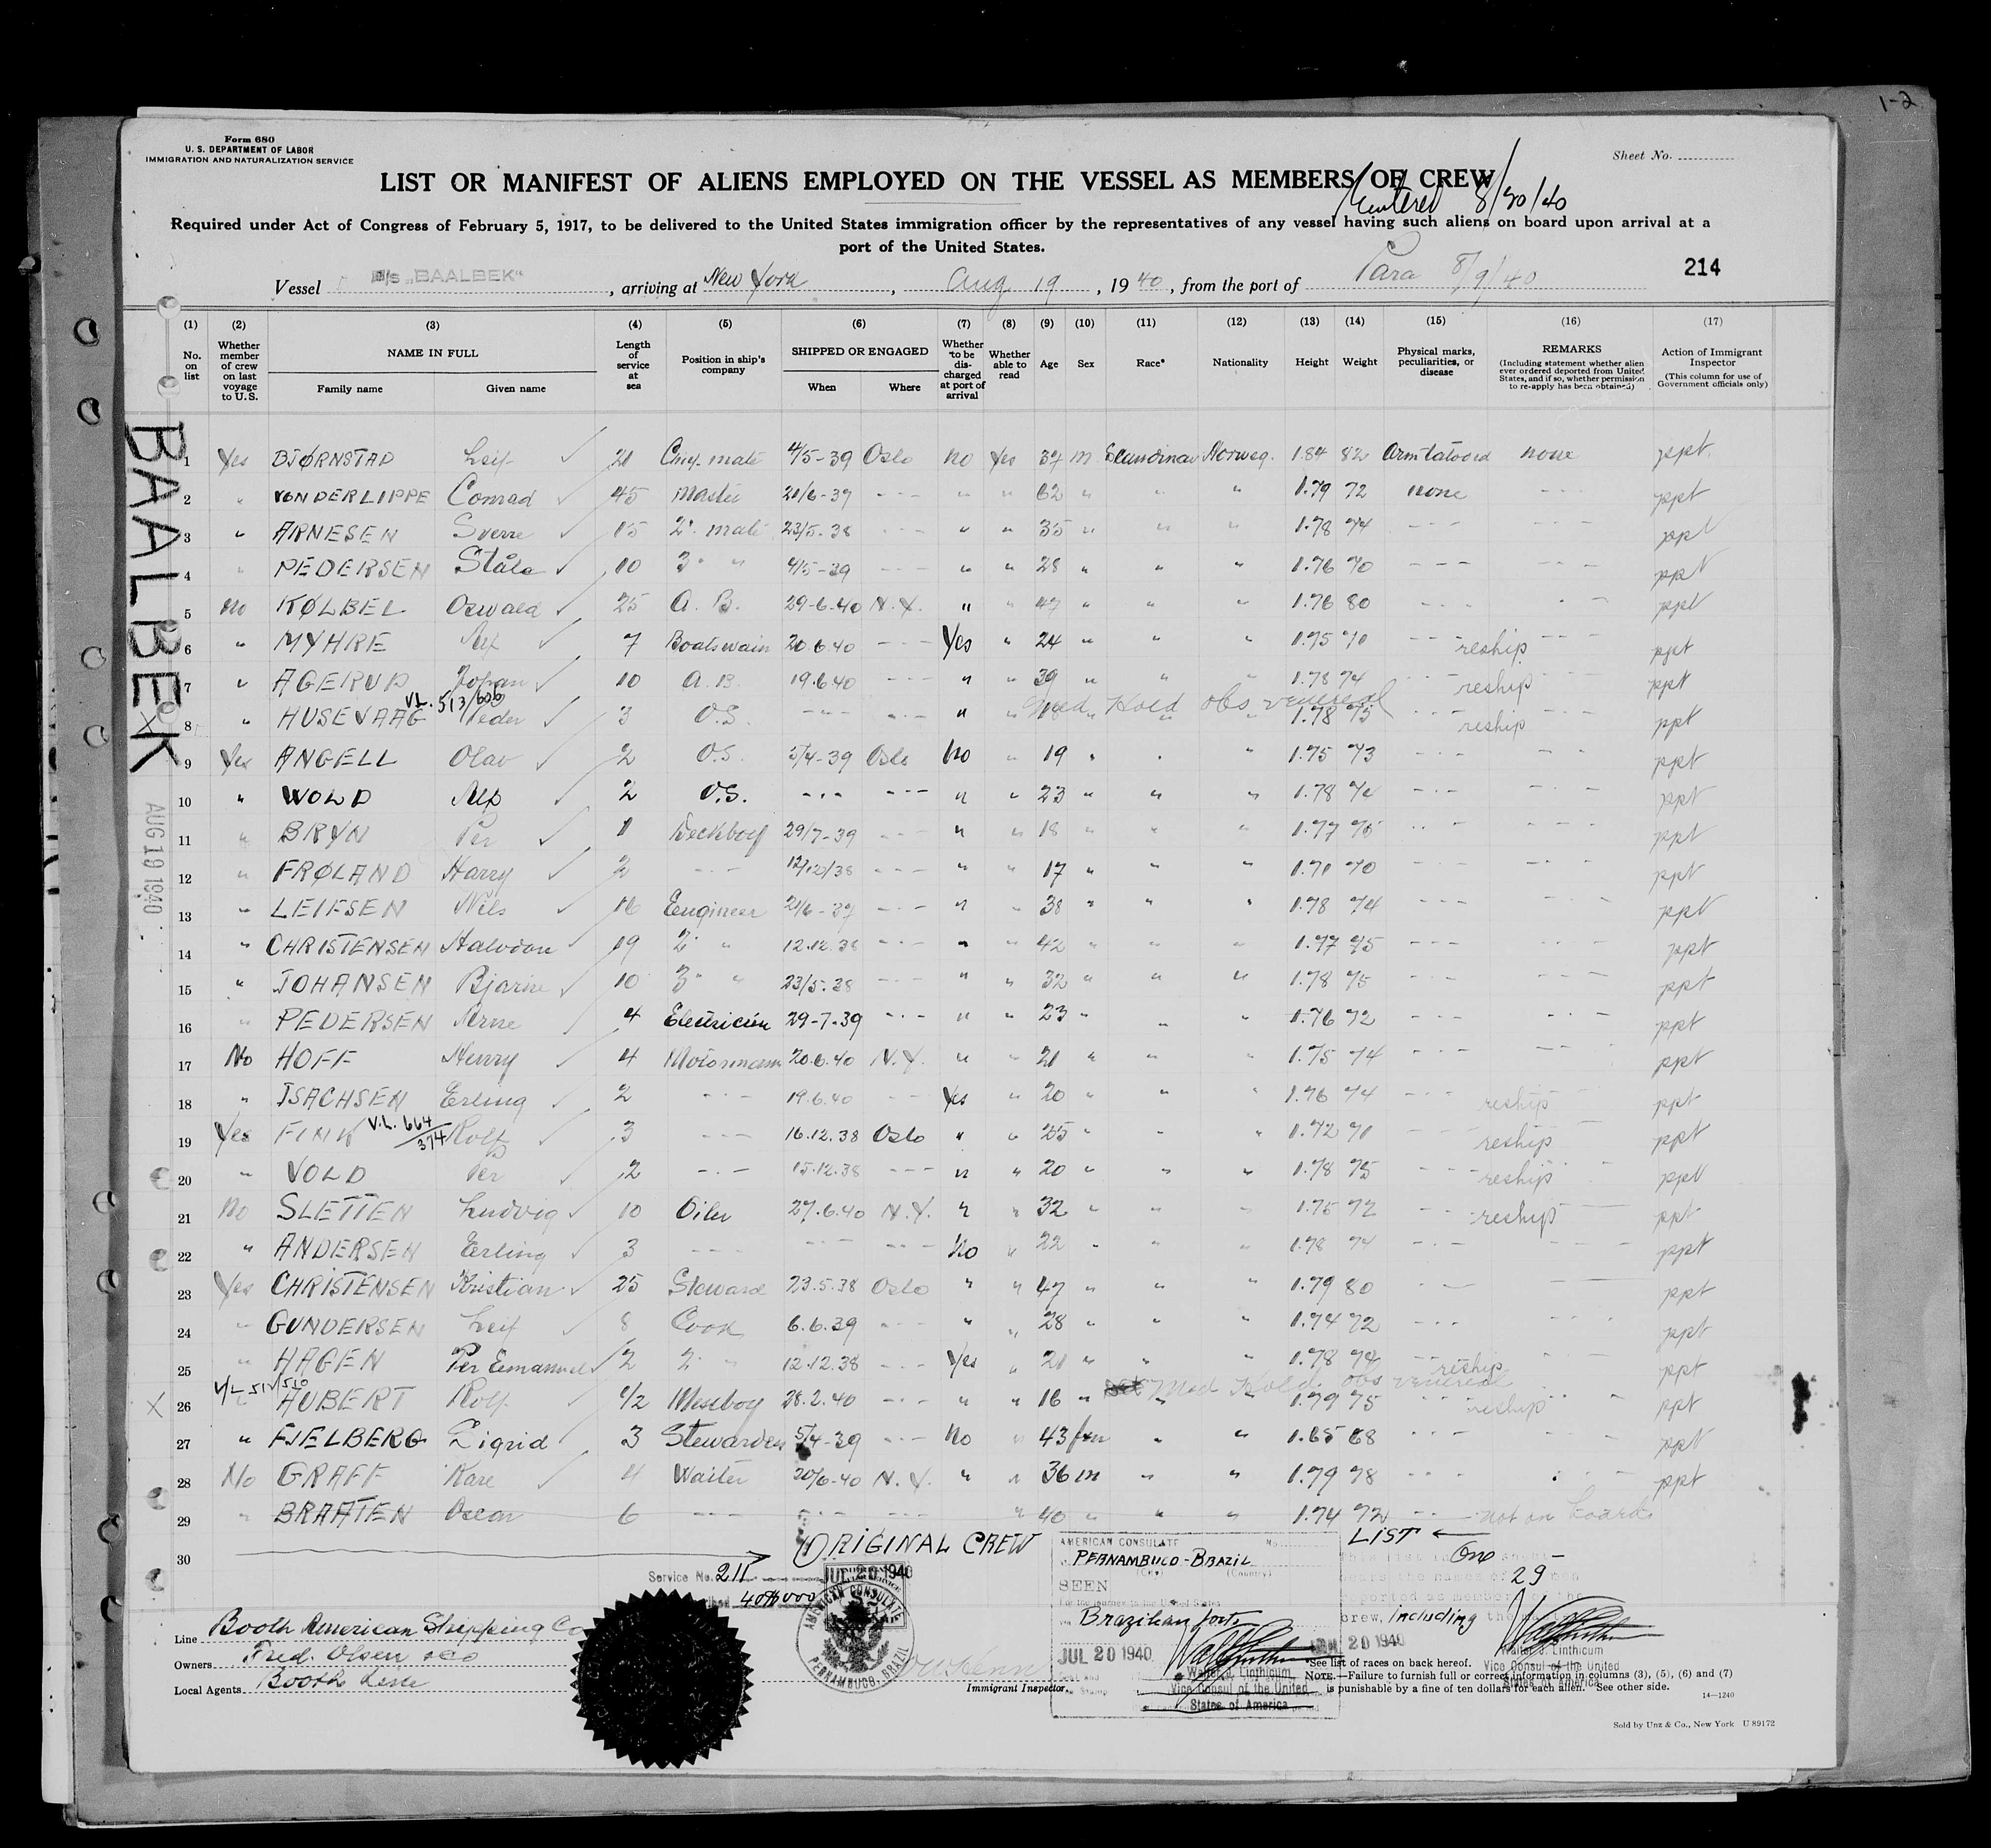 1-2
Form 680
U. S. DEPARTMENT OF LABOR
IMMIGRATION AND NATURALIZATION SERVICE
Sheet No.
LIST OR MANIFEST OF ALIENS EMPLOYED ON THE VESSEL AS MEMBERS OF CREW
Entered 8/20/40
Required under Act of Congress of February 5, 1917, to be delivered to the United States immigration officer by the representatives of any vessel having such aliens on board upon arrival at a
port of the United States.
Vessel M/S „BAALBEK", arriving at New York, Aug 19, 1940, from the port of Para 8/9/40
214
(1) (2) (3) (4) (5) (6) (7) (8) (9) (10) (11) (12) (13) (14) (15) (16) (17)
No. on list
Whether member of crew on last voyage to U.S.
NAME IN FULL
Family name Given name
Length of service at sea
Position in ship's company
SHIPPED OR ENGAGED
When Where
Whether to be discharged at port of arrival
Whether able to read
Age
Sex
Race*
Nationality
Height
Weight
Physical marks, peculiarities, or disease
REMARKS
(Including statement whether alien ever ordered deported from United States, and if so, whether permission to re-apply has been obtained)
Action of Immigrant Inspector
(This column for use of Government officials only)
BAALBEK
AUG 19 1940
1 Yes BJØRNSTAD Leif 21 Chief mate 4/5-39 Oslo no Yes 37 m Scandinav Norweg. 1.84 82 Arm tatooed none ppt
2 " VON DER LIPPE Conrad 45 Master 21/6-37 --- " " 62 " " " 1.79 72 none --- ppt
3 " ARNESEN Sverre 15 2. mate 23/5-38 --- " " 35 " " " 1.78 74 --- --- ppt
4 " PEDERSEN Ståle 10 3 " " 4/5-39 --- " " 28 " " " 1.76 70 --- --- ppt
5 no KØLBEL Oswald 25 A. B. 29-6.40 N.Y. " " 47 " " " 1.76 80 --- --- ppt
6 " MYHRE Alf 7 Boatswain 20.6.40 --- Yes " 24 " " " 1.75 70 --- reship --- ppt
7 " AGERUP Johan 10 A.B. 19.6.40 --- " " 39 " " " 1.78 74 --- reship ppt
VL. 513/606
Med. Hold obs venereal
8 " HUSEVAAG Peder 3 O.S. --- --- " " 18 " " " 1.78 75 --- reship ppt
9 Yes ANGELL Olav 2 O.S. 5/4-39 Oslo No " 19 " " " 1.75 73 --- --- ppt
10 " WOLD Alf 2 O.S. --- --- " " 23 " " " 1.78 74 --- --- ppt
11 " BRYN Per 1 Deckboy 29/7-39 --- " " 18 " " " 1.77 75 --- --- ppt
12 " FRØLAND Harry 2 --- 12/12/38 --- " " 17 " " " 1.71 70 --- --- ppt
13 " LEIFSEN Nils 16 Engineer 21/6-37 --- " " 38 " " " 1.78 74 --- --- ppt
14 " CHRISTENSEN Halvdan 19 2 " " 12.12.38 --- " " 42 " " " 1.77 75 --- --- ppt
15 " JOHANSEN Bjarne 10 3 " " 23/5-38 --- " " 32 " " " 1.78 75 --- --- ppt
16 " PEDERSEN Arne 4 Electricien 29-7-39 --- " " 23 " " " 1.76 72 --- --- ppt
17 No HOFF Henry 4 Motormann 20.6.40 N.Y. " " 21 " " " 1.75 74 --- --- ppt
18 " ISACHSEN Erling 2 --- 19.6.40 --- Yes " 20 " " " 1.76 74 --- reship ppt
V.L. 664/374
19 Yes FINN Rolf 3 --- 16.12.38 Oslo " " 25 " " " 1.72 71 --- reship ppt
20 " VOLD Per 2 --- 15.12.38 --- " " 20 " " " 1.78 75 --- reship ppt
21 No SLETTEN Ludvig 10 Oiler 27.6.40 N.Y. " " 32 " " " 1.75 72 --- reship ppt
22 " ANDERSEN Erling 3 --- --- --- No " 22 " " " 1.78 74 --- --- ppt
23 Yes CHRISTENSEN Kristian 25 Steward 23.5.38 Oslo " " 47 " " " 1.79 80 --- --- ppt
24 " GUNDERSEN Leif 8 Cook 6.6.39 --- " " 28 " " " 1.74 72 --- --- ppt
25 " HAGEN Per Emanuel 2 2 " " 12.12.38 --- Yes " 21 " " " 1.78 74 --- reship ppt
V/L 511/510
Med Hold. obs venereal
26 " HUBERT Rolf 1/2 Messboy 28.2.40 --- " " 16 " " " 1.79 75 reship ppt
27 " FJELBERG Zigrid 3 Stewardess 5/4-39 --- No " 43 fem " " 1.65 68 --- --- ppt
28 No GRAFF Kare 4 Waiter 20/6-40 N.Y. " " 36 m " " 1.79 78 --- --- ppt
29 " BRAATEN Oscar 6 --- --- --- " 40 " " 1.74 72 --- not on board
30
ORIGINAL CREW LIST
Service No. 211
JUL 20 1940
AMERICAN CONSULATE
PERNAMBUCO, BRAZIL
AMERICAN CONSULATE No.
PERNAMBUCO - BRAZIL
(City) (Country)
SEEN
For the journey to the United States
via Brazilian ports
JUL 20 1940
Walter J. Linthicum
Vice Consul of the United
States of America
One
29
crew, including the
20 1940
Walter J. Linthicum
Vice Consul of the United
States of America
Line Booth American Shipping Co
Owners Fred. Olsen & Co
Local Agents Booth Line
Immigrant Inspector.
*See list of races on back hereof.
NOTE.—Failure to furnish full or correct information in columns (3), (5), (6) and (7)
is punishable by a fine of ten dollars for each alien. See other side.
14—1240
Sold by Unz & Co., New York U 89172